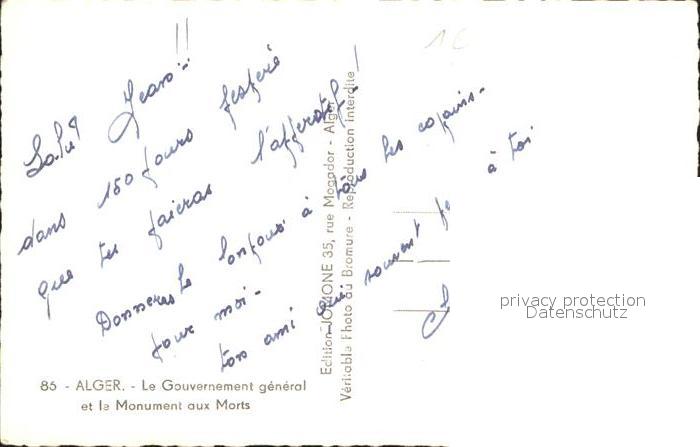 Salut Jeano!!
dans 150 jours j'espère
que tu paieras l'apperotif!
Donneras le bonjour à tous les copains-
pour moi-
ton ami qui souvent pe à toi
85 - ALGER. - Le Gouvernement général
et le Monument aux Morts
Edition JOMONE 35, rue Mogador - Alger
Véritable Photo au Bromure - Reproduction interdite
privacy protection
Datenschutz